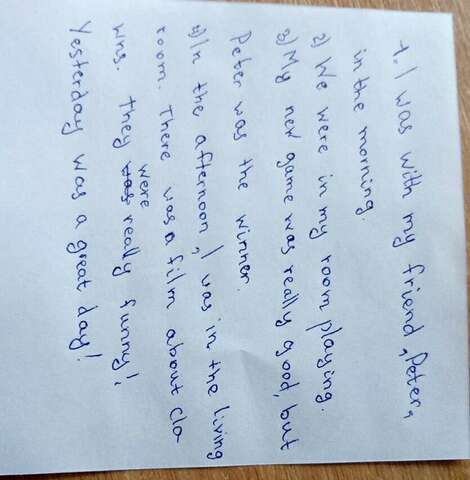 1. I was with my friend, Peter,
in the morning.
2) We were in my room playing.
3) My new game was really good, but
Peter was the winner.
4) In the afternoon, I was in the living
room. There was a film about clo-
wns. They were really funny!
Yesterday was a great day!